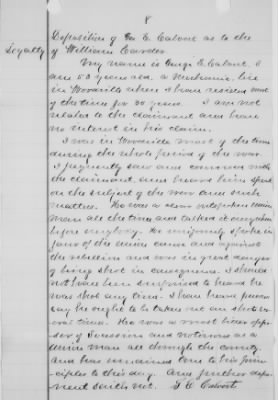 8
Deposition of Geo E. Calvert as to the
Loyalty of William Carder
My name is George E. Calvert. I
am 53 years old, a Mechanic, live
in Woodville where I have resided most
of the time for 30 years. I am not
related to the claimant and have
no interest in his claim.
I was in Woodville most of the time
during the whole period of the war.
I frequently saw and conversed with
the claimant and heard him speak
on the subject of the war and such
matters. He was a clear outspoken union
man all the time and talked it anywhere
before anybody. He uniformly spoke in
favor of the union cause and against
the rebellion and was in great danger
of being shot in consequence. I should
not have been surprised to heard he
was shot any time. I have heard persons
say he ought to be taken out and shot
several times. He was a most bitter opposer
of Secession and notorious as a
union man all through the county
and has remained true to his prin-
ciples to this day. And further depo-
nent saith not. G E Calvert